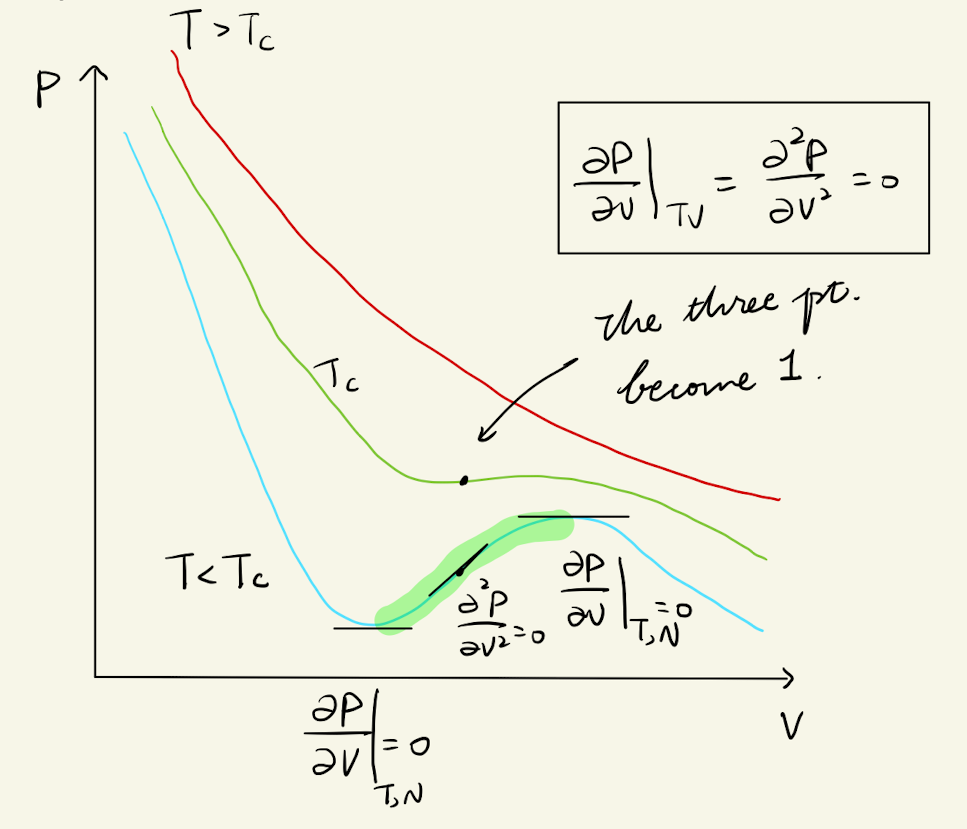 T > Tc
P
∂P/∂V |TV = ∂²P/∂V² = 0
the three pt.
become 1.
Tc
T < Tc
∂²P/∂V² = 0
∂P/∂V |T,N = 0
V
∂P/∂V |T,N = 0